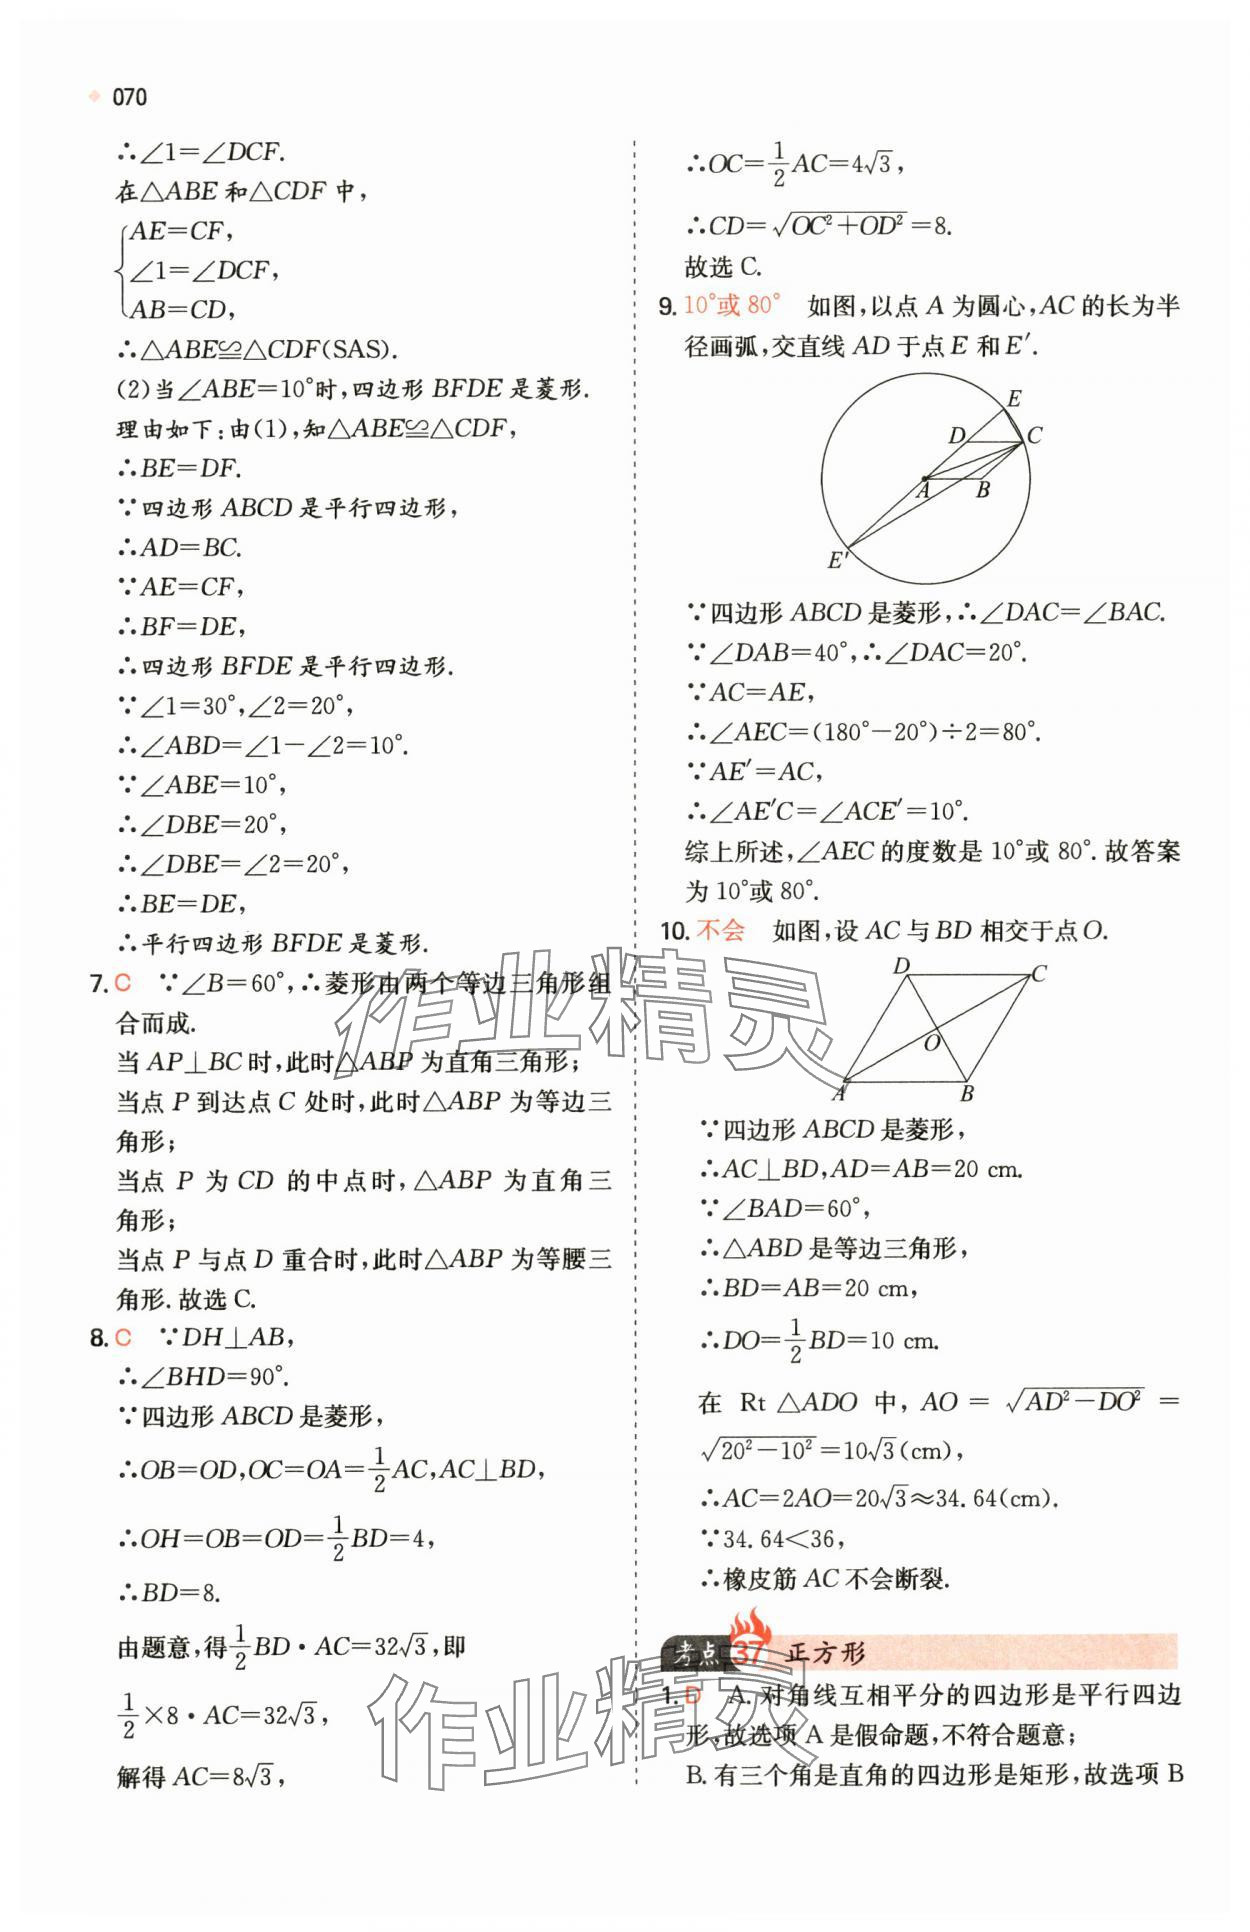 070
∴∠1=∠DCF.
在△ABE和△CDF中,
AE=CF,
∠1=∠DCF,
AB=CD,
∴△ABE≌△CDF(SAS).
(2)当∠ABE=10°时,四边形BFDE是菱形.
理由如下:由(1),知△ABE≌△CDF,
∴BE=DF.
∵四边形ABCD是平行四边形,
∴AD=BC.
∵AE=CF,
∴BF=DE,
∴四边形BFDE是平行四边形.
∵∠1=30°,∠2=20°,
∴∠ABD=∠1-∠2=10°.
∵∠ABE=10°,
∴∠DBE=20°,
∴∠DBE=∠2=20°,
∴BE=DE,
∴平行四边形BFDE是菱形.
7. C ∵∠B=60°,∴菱形由两个等边三角形组
合而成.
当AP⊥BC时,此时△ABP为直角三角形;
当点P到达点C处时,此时△ABP为等边三
角形;
当点P为CD的中点时,△ABP为直角三
角形;
当点P与点D重合时,此时△ABP为等腰三
角形.故选C.
8. C ∵DH⊥AB,
∴∠BHD=90°.
∵四边形ABCD是菱形,
∴OB=OD,OC=OA=1/2AC,AC⊥BD,
∴OH=OB=OD=1/2BD=4,
∴BD=8.
由题意,得1/2BD·AC=32√3,即
1/2×8·AC=32√3,
解得AC=8√3,
∴OC=1/2AC=4√3,
∴CD=√(OC²+OD²)=8.
故选C.
9. 10°或80° 如图,以点A为圆心,AC的长为半
径画弧,交直线AD于点E和E′.
E
D C
A B
E′
∵四边形ABCD是菱形,∴∠DAC=∠BAC.
∵∠DAB=40°,∴∠DAC=20°.
∵AC=AE,
∴∠AEC=(180°-20°)÷2=80°.
∵AE′=AC,
∴∠AE′C=∠ACE′=10°.
综上所述,∠AEC的度数是10°或80°.故答案
为10°或80°.
10. 不会 如图,设AC与BD相交于点O.
D C
O
A B
∵四边形ABCD是菱形,
∴AC⊥BD,AD=AB=20 cm.
∵∠BAD=60°,
∴△ABD是等边三角形,
∴BD=AB=20 cm,
∴DO=1/2BD=10 cm.
在 Rt △ADO 中, AO = √(AD²-DO²) =
√(20²-10²)=10√3(cm),
∴AC=2AO=20√3≈34.64(cm).
∵34.64<36,
∴橡皮筋AC不会断裂.
考点37 正方形
1. D A.对角线互相平分的四边形是平行四边
形,故选项A是假命题,不符合题意;
B.有三个角是直角的四边形是矩形,故选项B
作业精灵
作业精灵